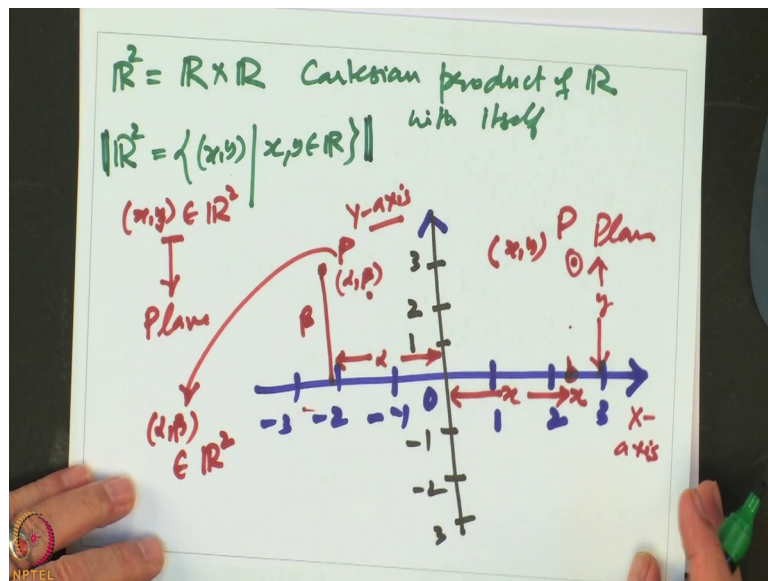 ℝ² = ℝ × ℝ Cartesian product of ℝ
with itself
ℝ² = {(x,y) | x,y ∈ ℝ}
(x,y) ∈ ℝ²
Plane
Y-axis
P
(α,β)
β
α
(α,β)
∈ ℝ²
(x,y) P Plane
y
3
2
1
-3 -2 -1 0 1 2 x 3
x
X-
axis
-1
-2
3
NPTEL